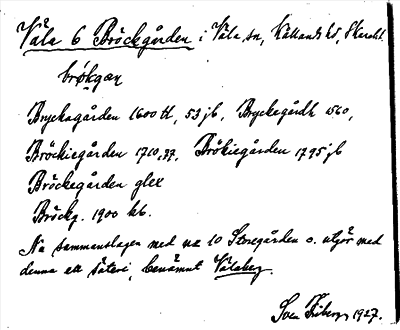 Våla 6 Bröckgården i Våla sn, Kållands hd, Skarabl.
brøkgan
Bryckagården 1600 tl, 53 jb, Bryckagårdh 1560,
Bröckiegården 1710, 37, Brökiegården 1795 jb
Bröckegården glex
Bröckg. 1900 kb.
Nu sammanslagen med na 10 Storegården o. utgör med
denna ett säteri, benämnt Vålaberg.
Sven Friberg 1927.